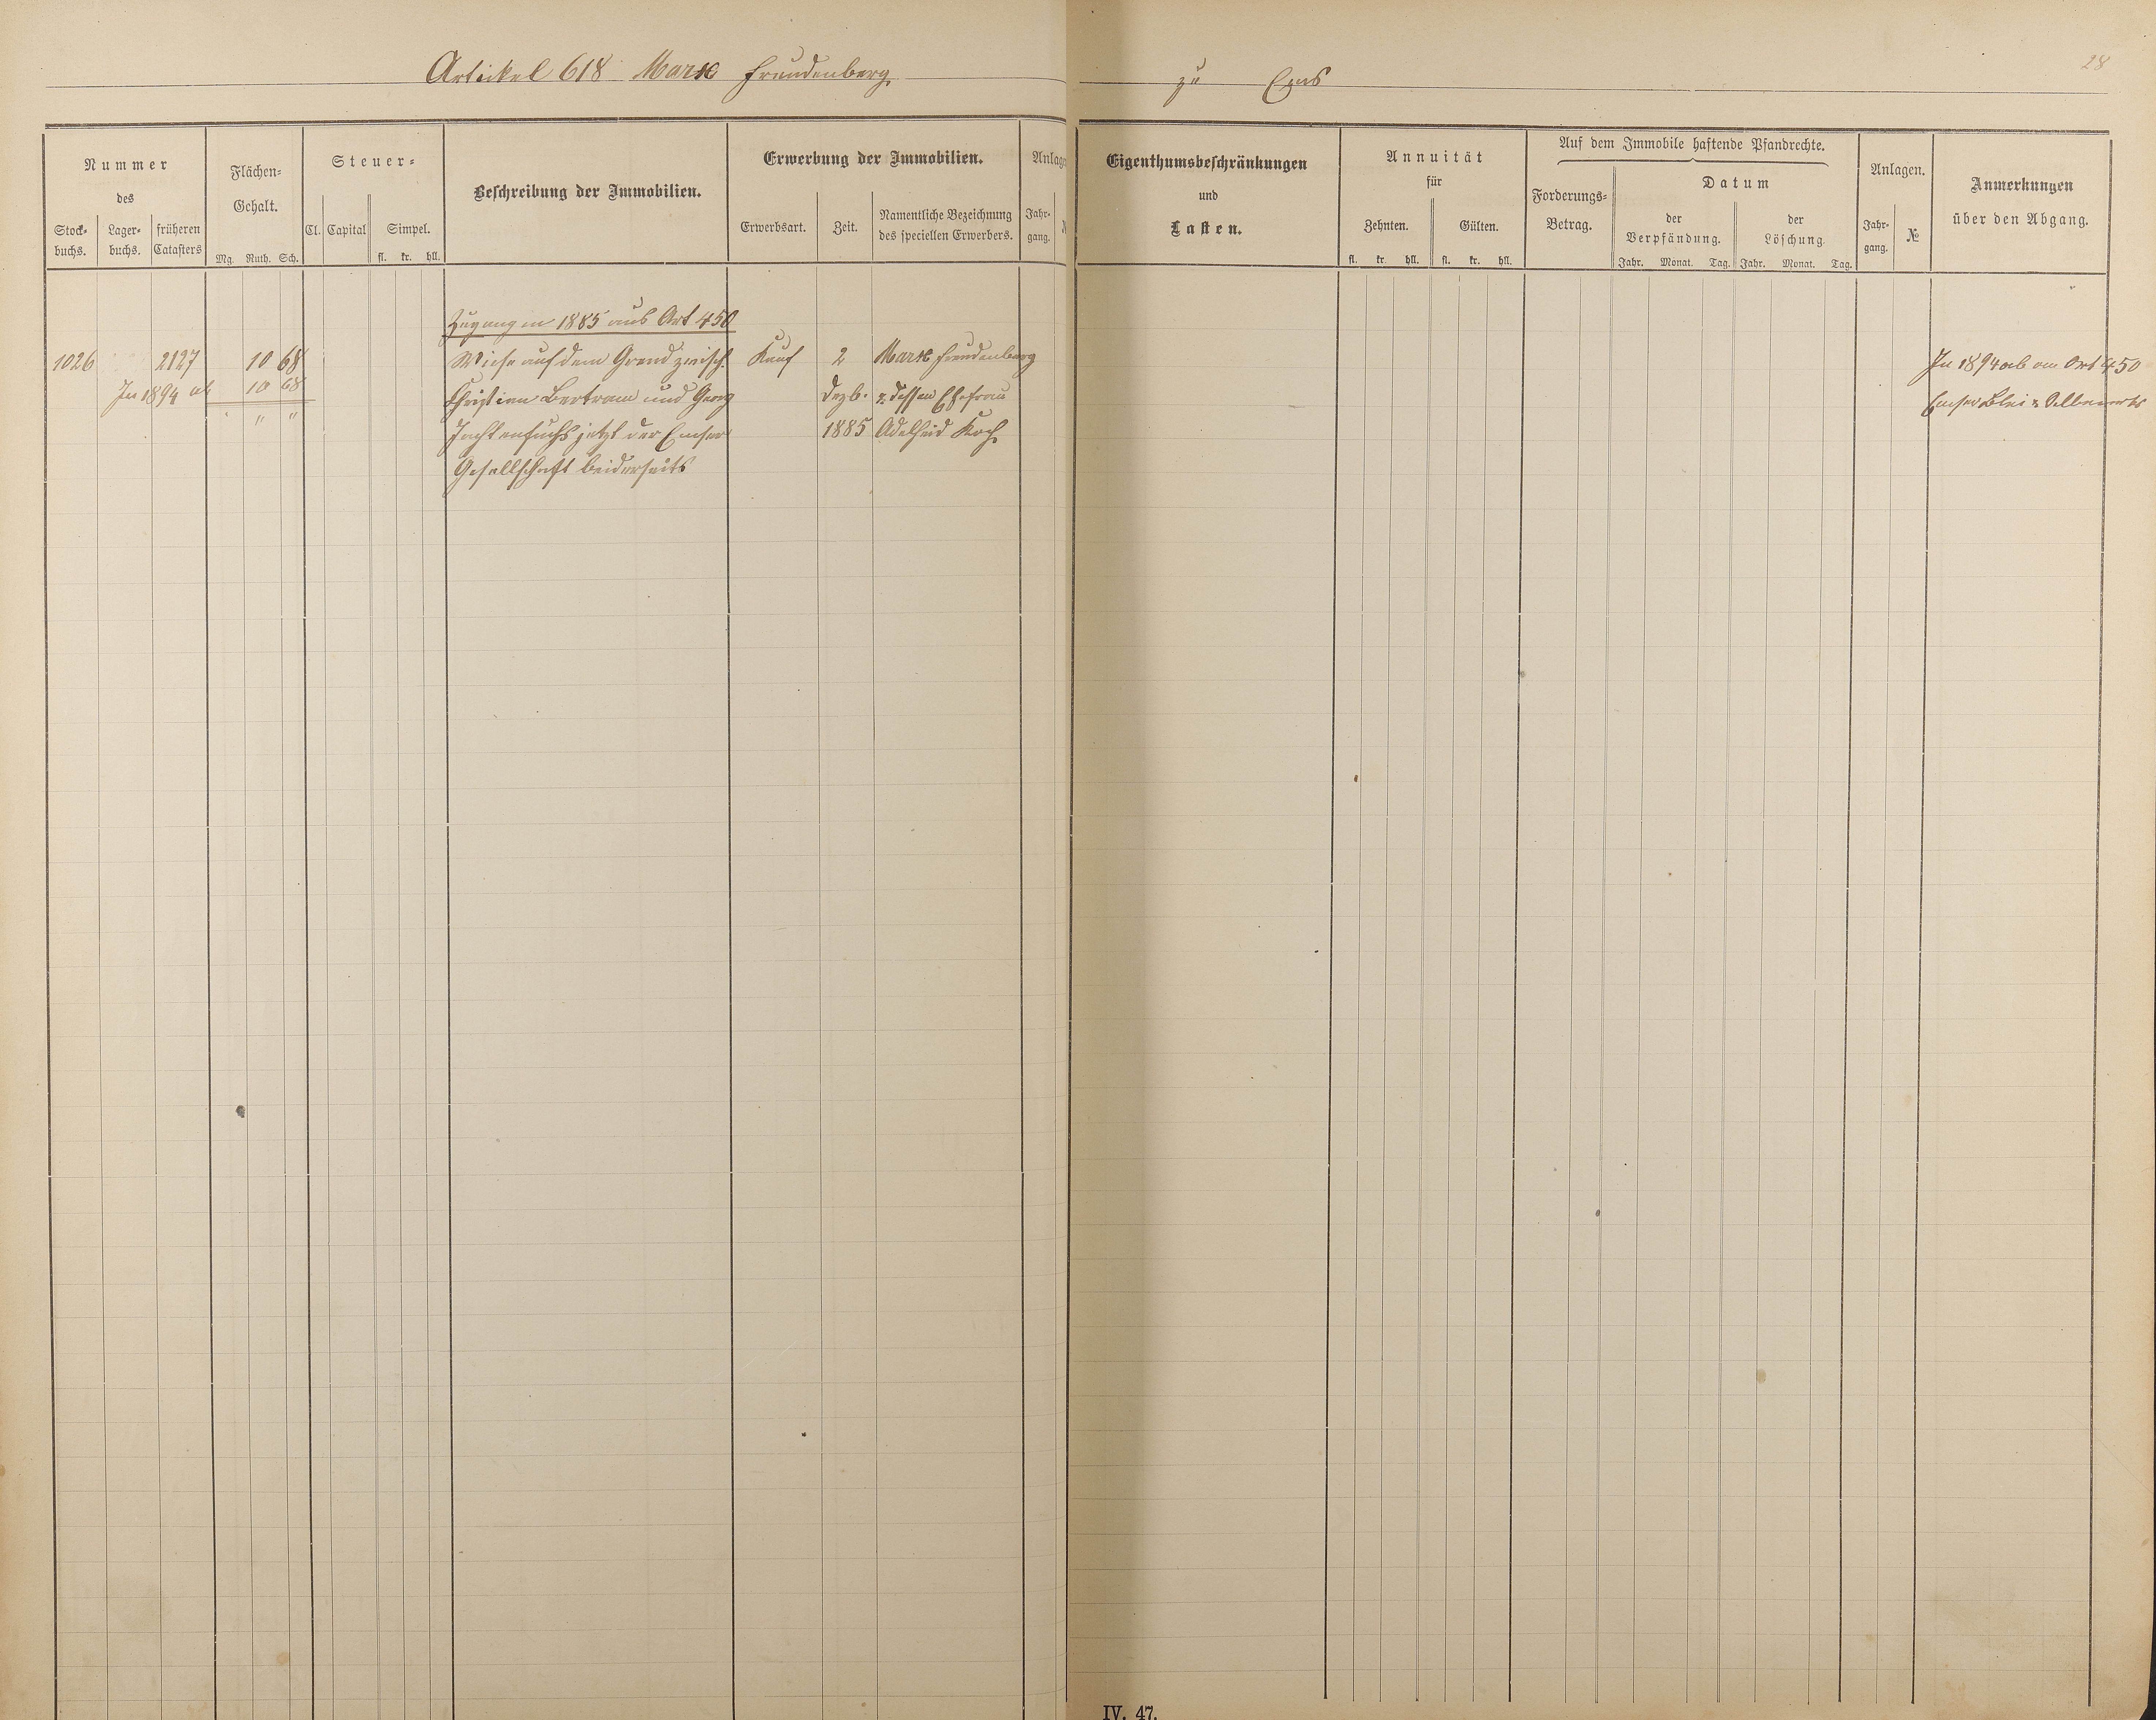 28
Artikel 618 Marx Freudenberg zu Ems
Nummer
des
Stock-
buchs.
Lager-
buchs.
früheren
Catasters
Flächen-
Gehalt.
Mg. Ruth. Sch.
Steuer-
Cl. Capital Simpel.
fl. kr. hll.
Beschreibung der Immobilien.
Erwerbung der Immobilien.
Erwerbsart.
Zeit.
Namentliche Bezeichnung
des speciellen Erwerbers.
Anlage
Jahr-
gang.
Eigenthumsbeschränkungen
und
Lasten.
Annuität
für
Zehnten. Gülten.
fl. kr. hll. fl. kr. hll.
Auf dem Immobile haftende Pfandrechte.
Forderungs-
Betrag.
Datum
der
Verpfändung.
Jahr. Monat. Tag.
der
Löschung.
Jahr. Monat. Tag.
Anlagen.
Jahr-
gang.
№
Anmerkungen
über den Abgang.
Zugang in 1885 aus Art 450
1026 2127 10 68 Wiese auf dem Grend zwisch. Kauf 2 Marx Freudenberg In 1894 ab an Art 450
In 1894 ab 10 68 Christian Bertram und Georg Dezb. & dessen Ehefrau Emser Blei &
" " " Jachtenfuchs jetzt der Emser 1885 Adelheid Koch
Gesellschaft beiderseits
IV. 47.